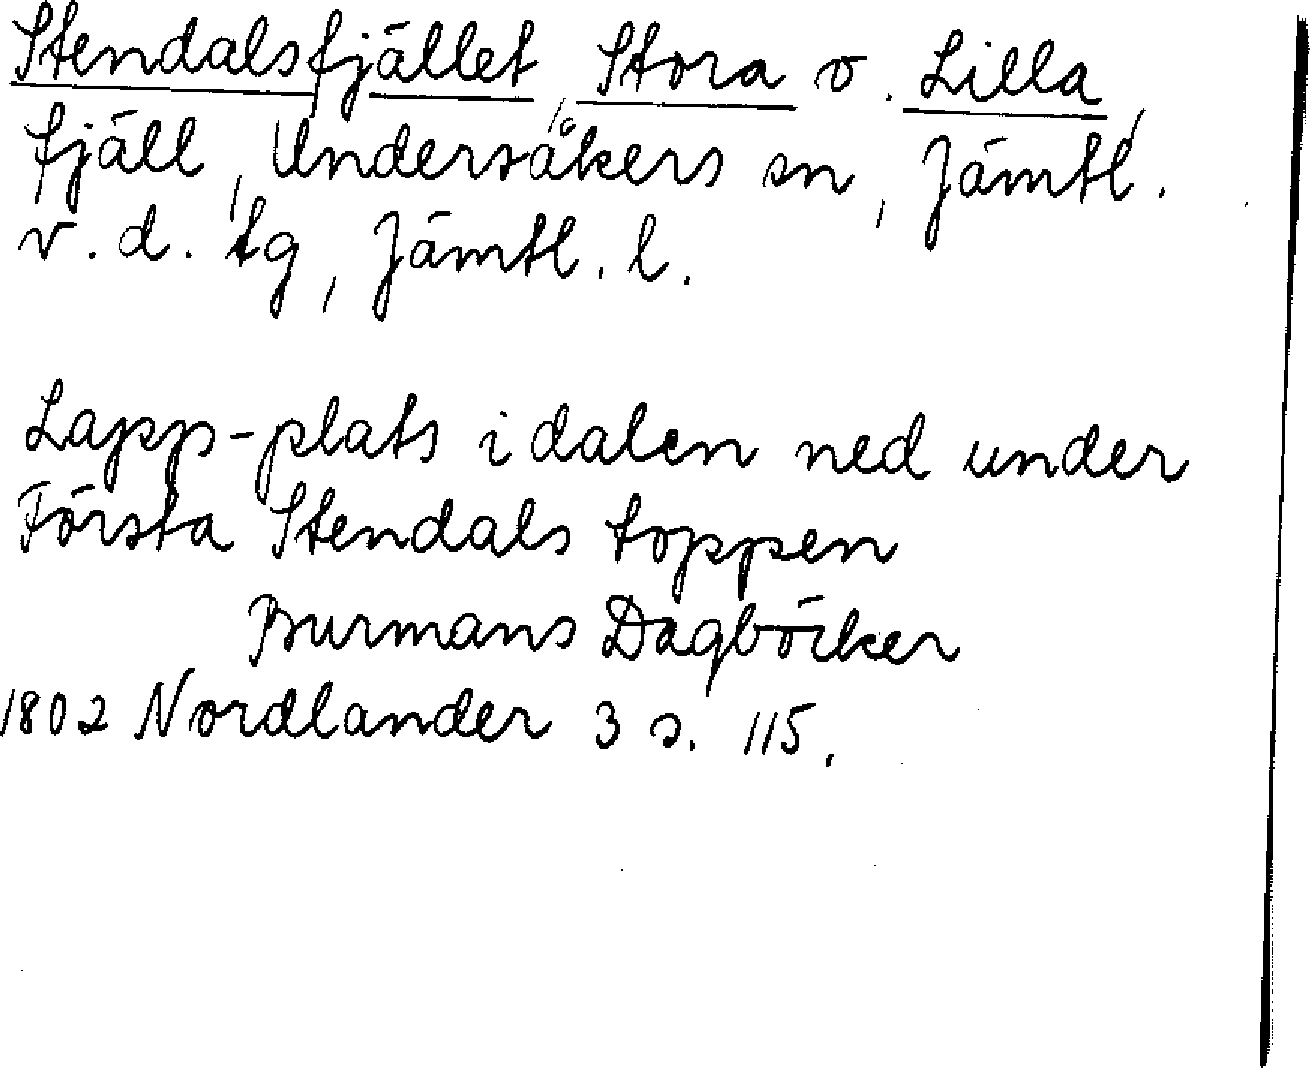 Stendalsfjället, Stora o. Lilla,
fjäll, Undersåkers sn, Jämtl.
v. d. tg, Jämtl. l.
Lapp-plats i dalen ned under
Första Stendals toppen
Burmans Dagböcker
1802 Nordlander 3 s. 115.